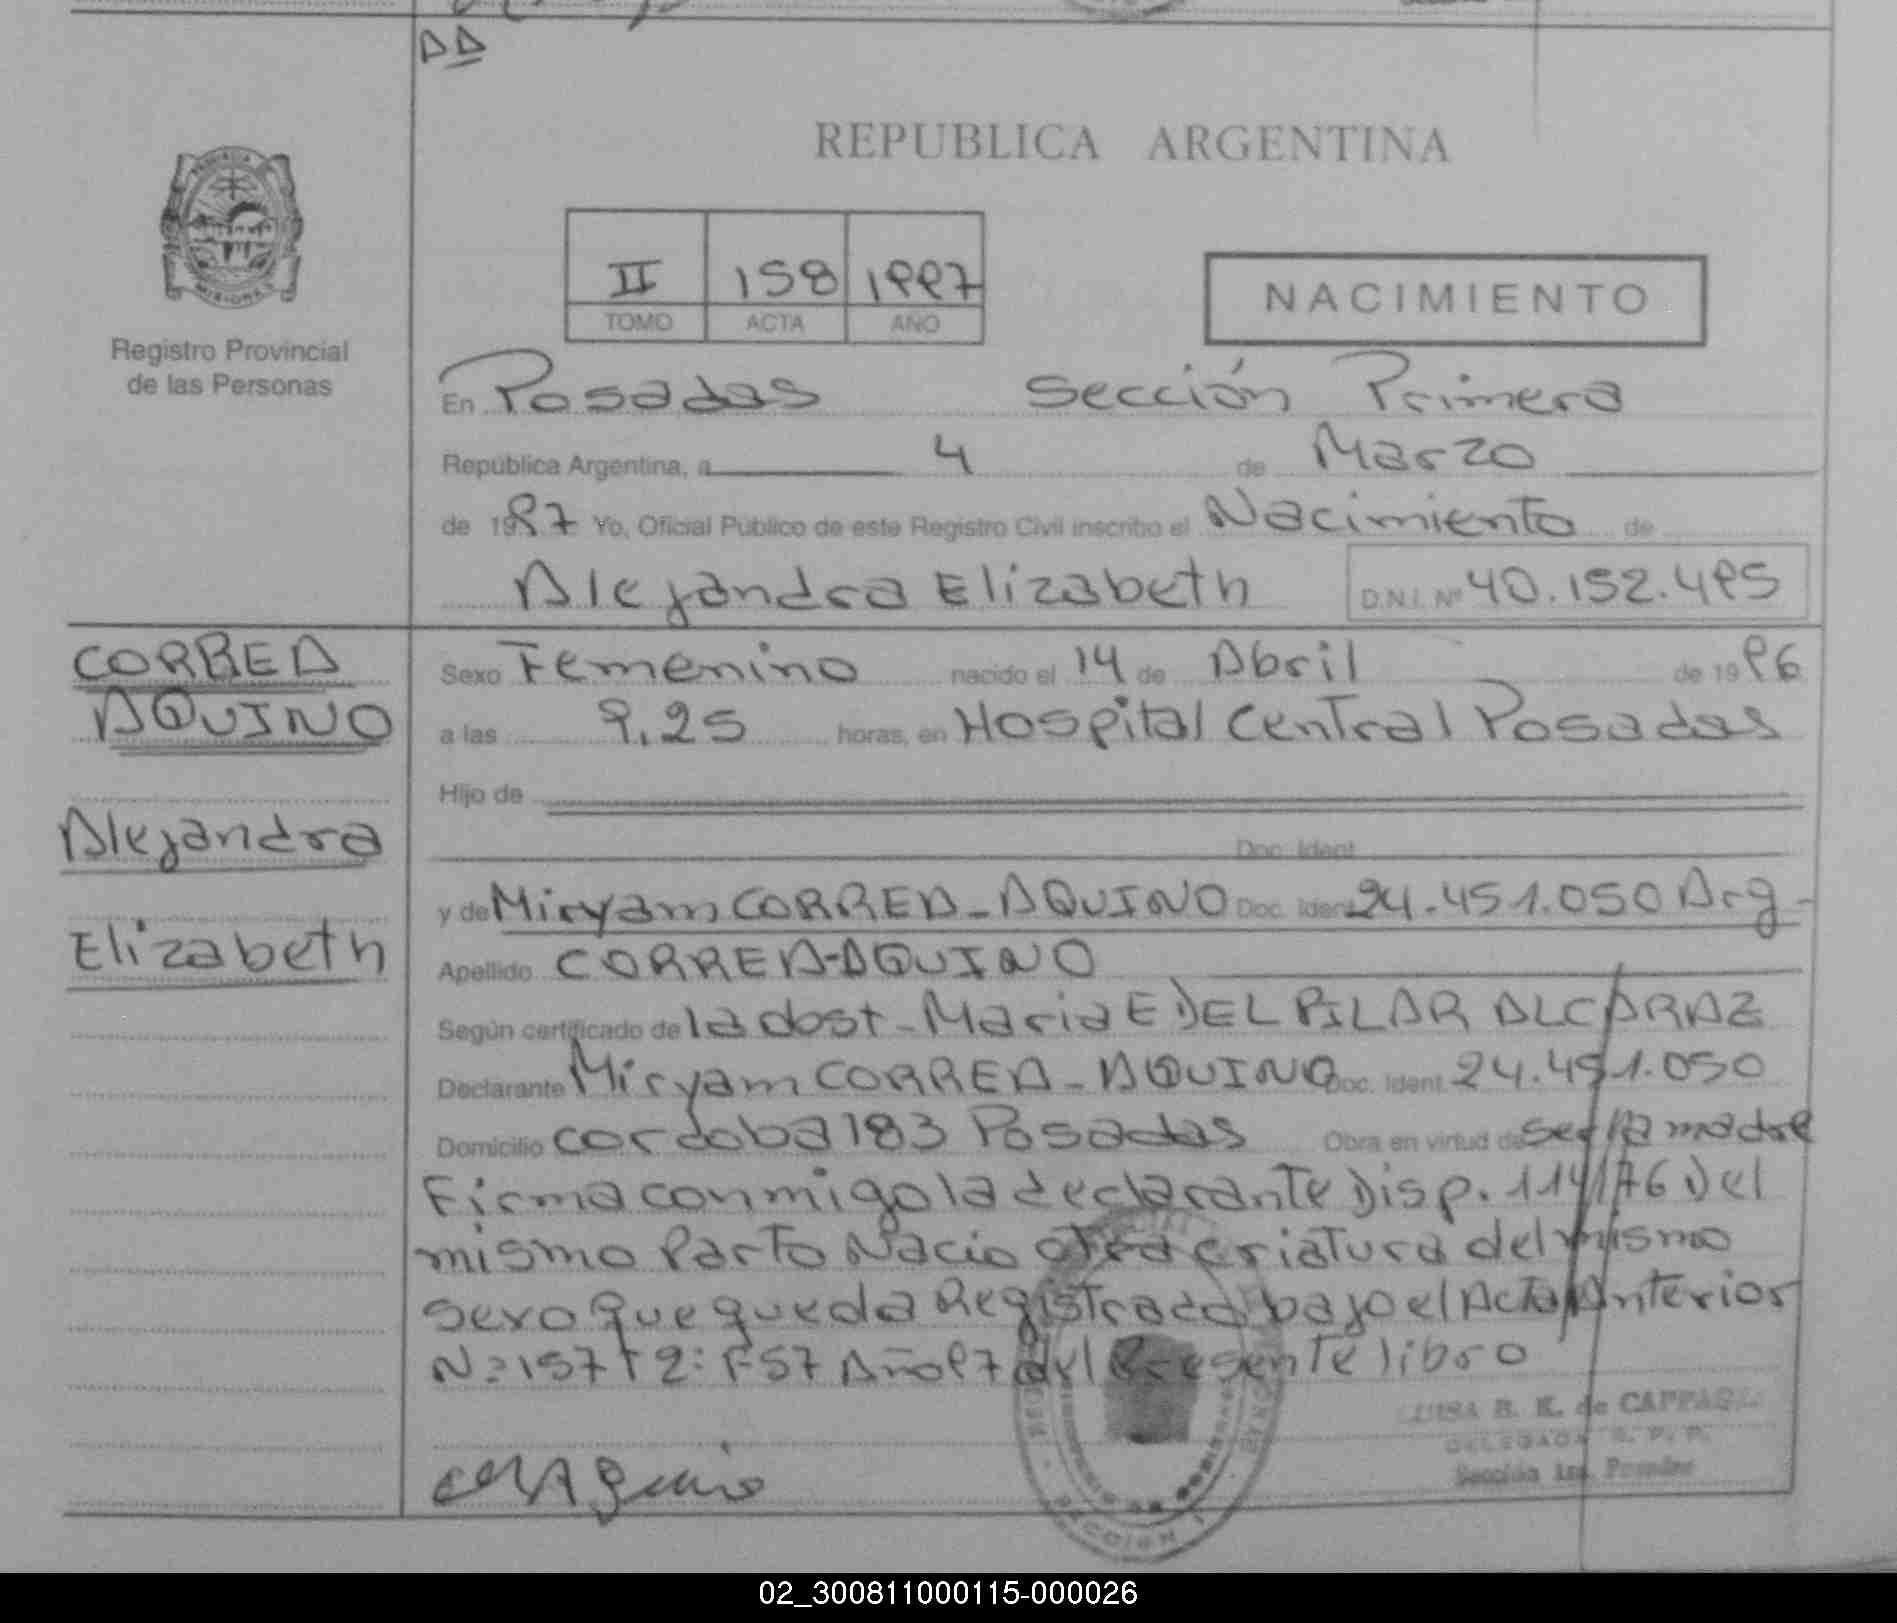 DD
REPUBLICA ARGENTINA
II 158 1997
TOMO ACTA AÑO
NACIMIENTO
MISIONES
Registro Provincial
de las Personas
En Posadas Sección Primera
República Argentina, a 4 de Marzo
de 1997 Yo, Oficial Público de este Registro Civil inscribo el Nacimiento de
Alejandra Elizabeth D.N.I. Nº 40.152.495
CORREA
AQUINO
Alejandra
Elizabeth
Sexo Femenino nacido el 14 de Abril de 1996
a las 9,25 horas, en Hospital Central Posadas
Hijo de
Doc. Ident
y de Miryam CORREA-AQUINO Doc. Ident 24.451.050 Arg-
Apellido CORREA-AQUINO
Según certificado de la obst- Maria E DEL PILAR ALCARAZ
Declarante Miryam CORREA-AQUINO Doc. Ident. 24.451.050
Domicilio cordoba 183 Posadas Obra en virtud de ser la madre
Firma conmigo la declarante Disp. 114/76 Del
mismo Parto Nacio otra criatura del mismo
sexo que queda Registrado bajo el Acta Anterior
N=157 T 2: F57 Año 97 del Presente libro
LUISA B. K. de
DELEGADA R. P. P.
Sección 1ra. Posadas
SECCION 1
02_300811000115-000026